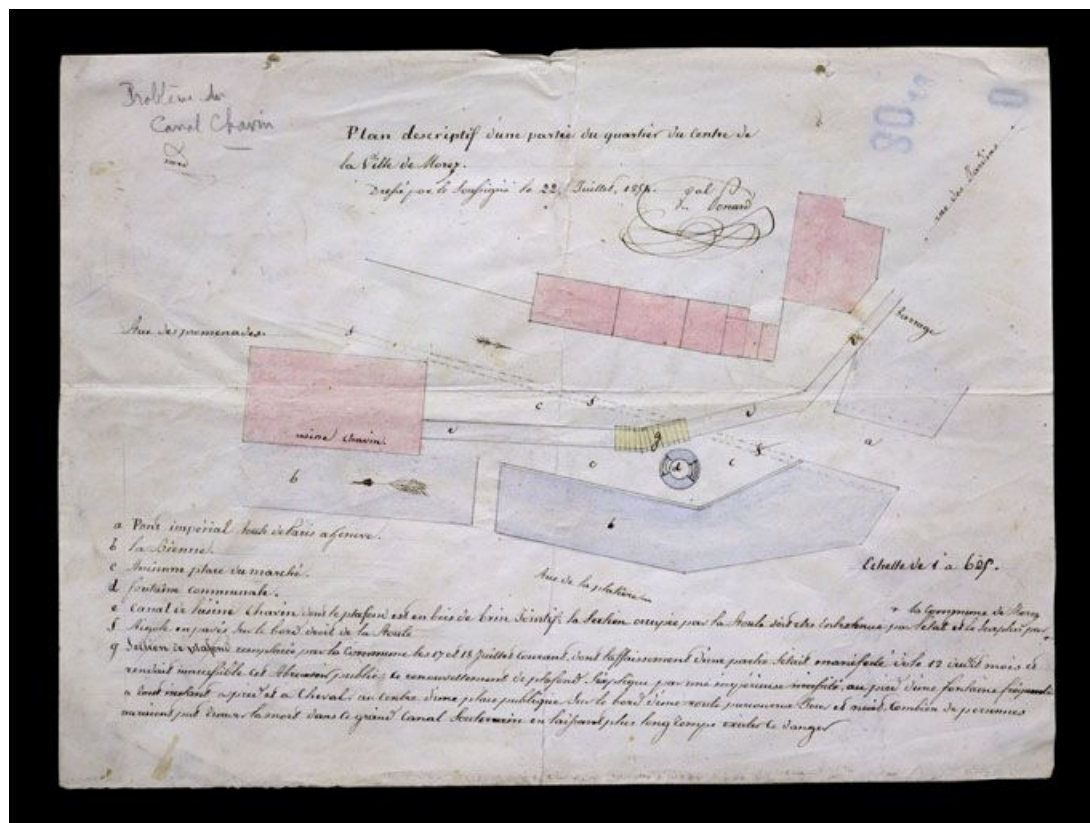 Problème du
Canal Chavin
Plan descriptif d'une partie du quartier du Centre de
la Ville de Morez.
Dressé par le Soussigné le 22 Juillet, 1854.
80
0
rue des Jardins
Barrage
Rue des promenades.
f
c f
e
d
g
usine Chavin.
c d c f
a
b
b
a Pont impérial Route de Paris a Genève.
b la Bienne.
c Ancienne place du marché.
d fontaine communale.
Rue de la platine
Echelle de 1 a 625.
e Canal de l'usine Chavin dont le plafond est en bois de brin Jointif, la Section occupée par la Route doit etre Entretenue par l'état et le Surplus par
+ la Commune de Morez
f Rigole en pavés Sur le bord droit de la Route
g Section de plafond remplacée par la Commune les 17 et 18 Juillet courant, dont l'affaissement d'une partie S'était manifesté dès le 12 dudit mois et
rendait inaccessible cet Abreuvoir public; Ce renouvellement de plafond S'explique par une impérieuse nécessité, au pied d'une fontaine fréquentée
a tout instant a pied et a Cheval, au Centre d'une place publique Sur le bord d'une route parcourue Jour et nuit, Combien de personnes
auraient put trouver la mort dans ce grand Canal Souterrain en laissant plus long temps exister Ce danger